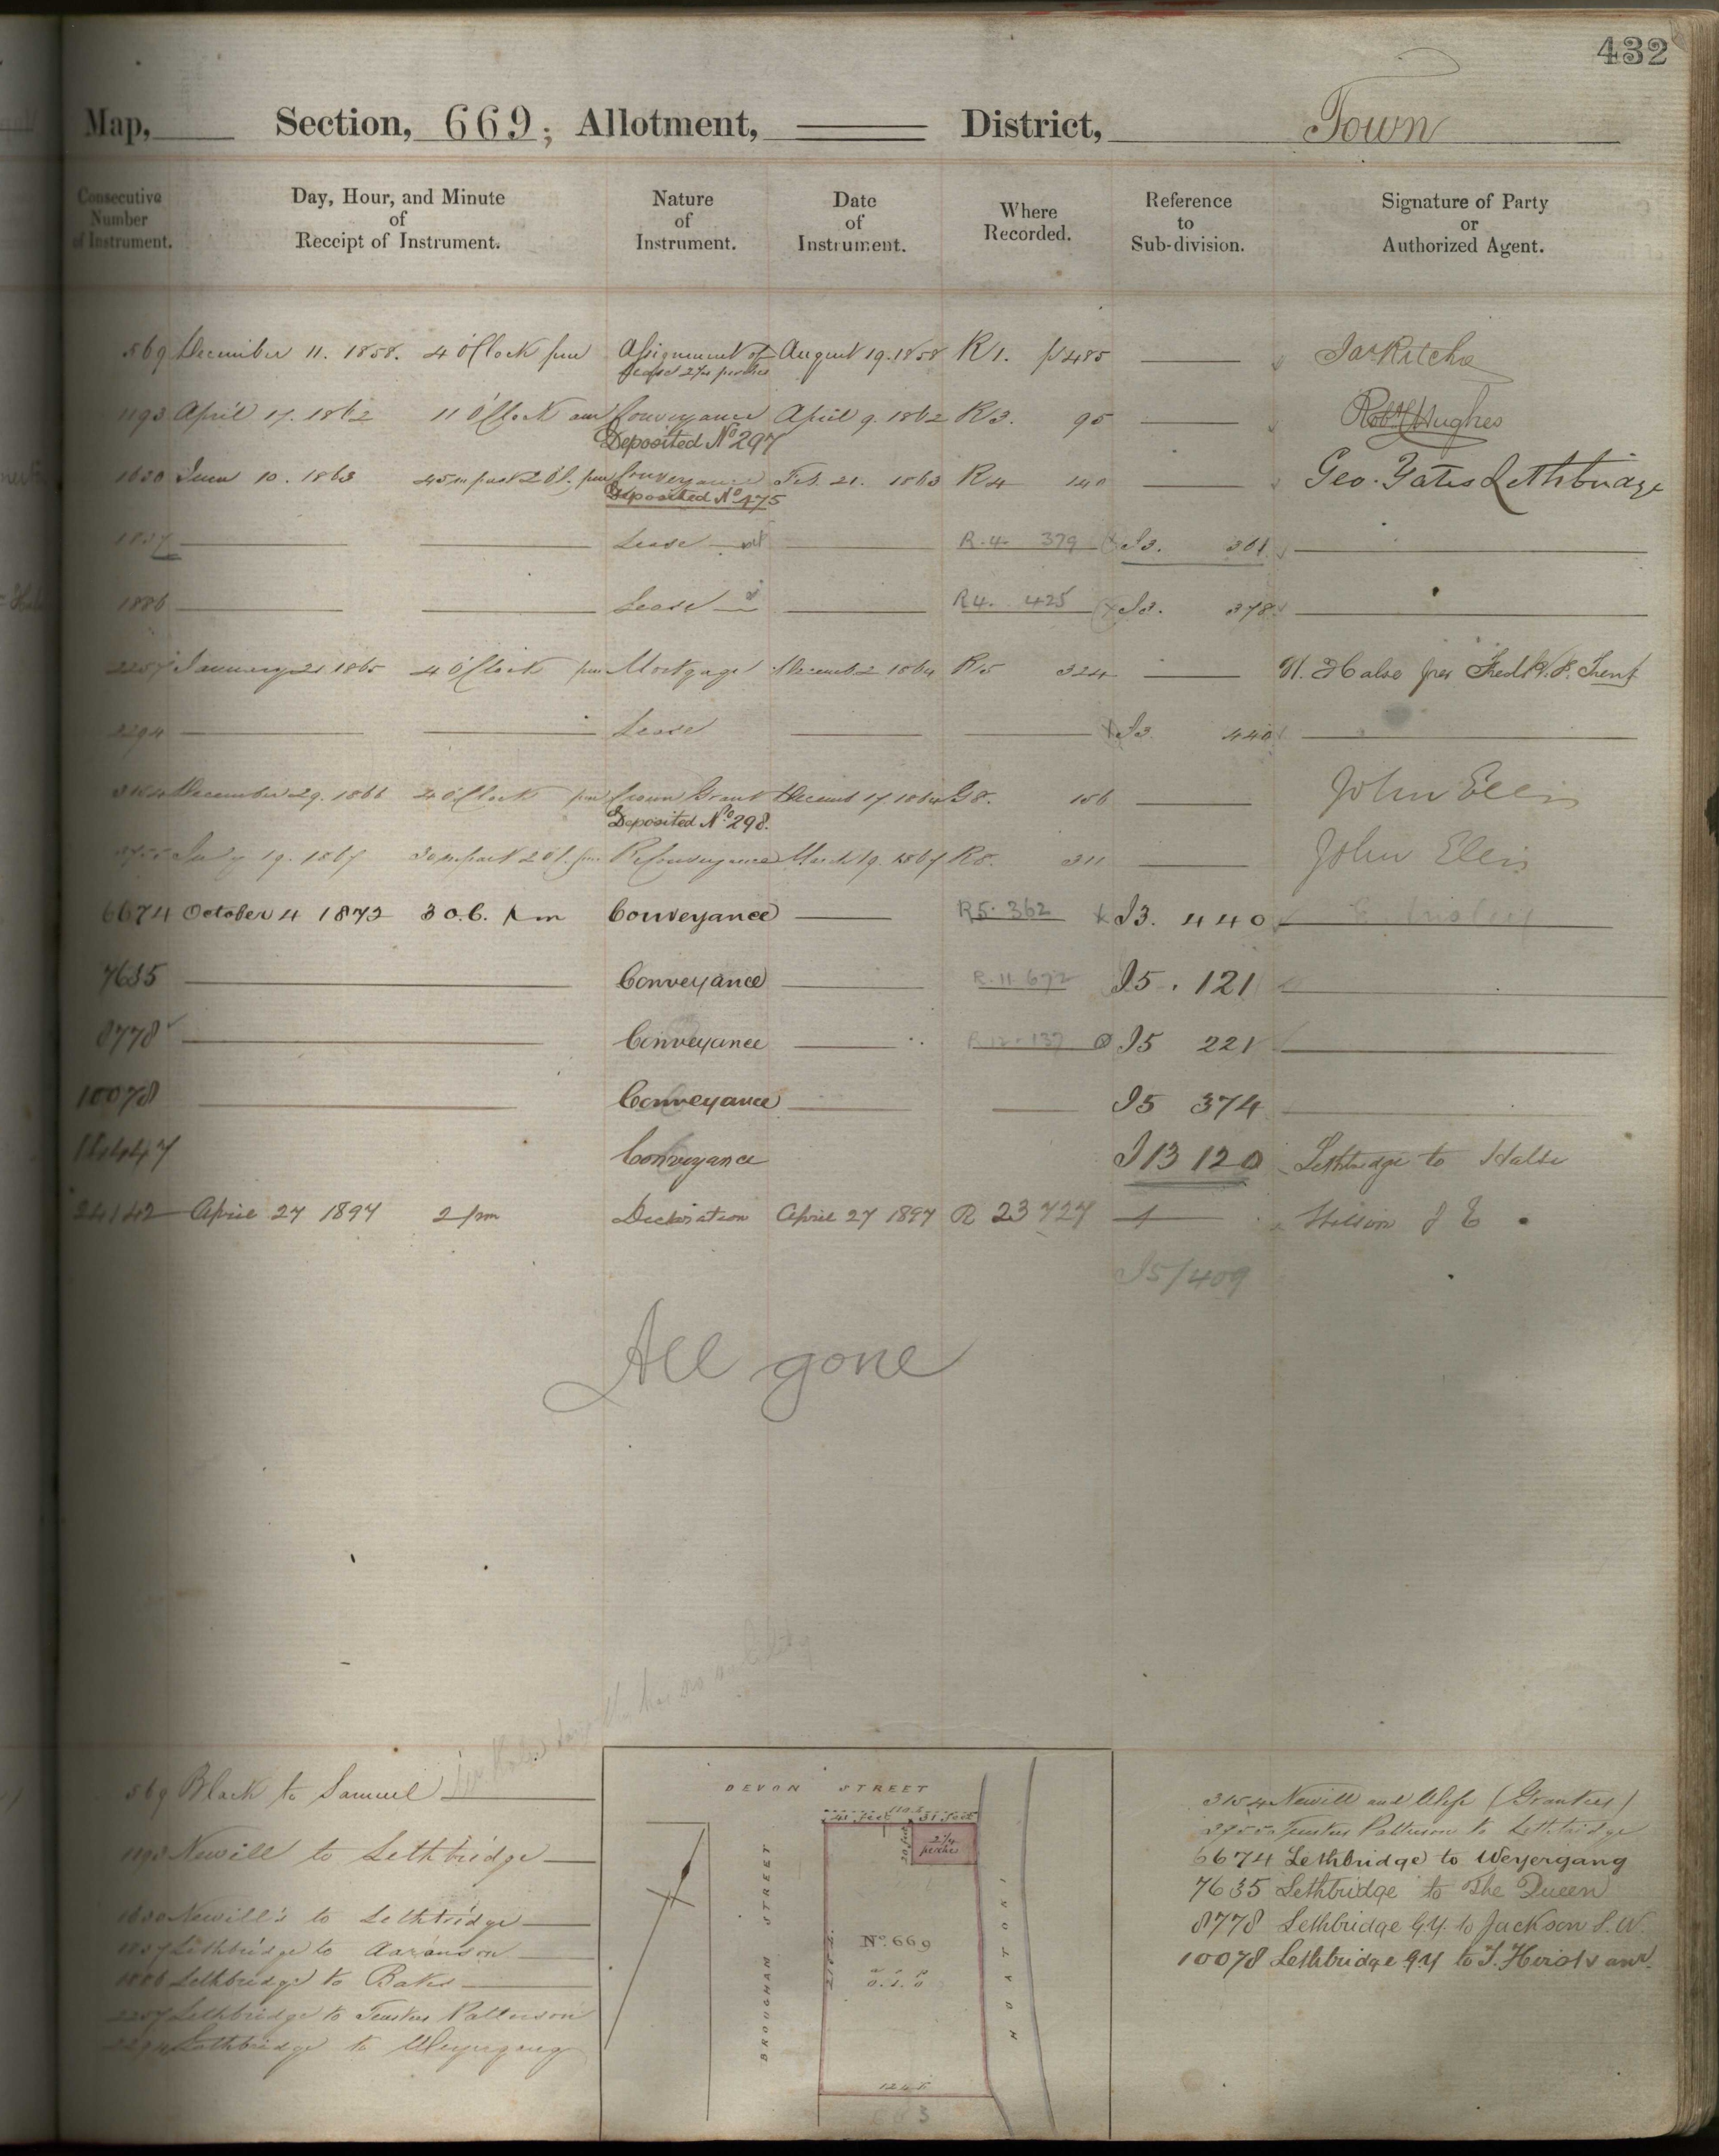 432
Map, Section, 669; Allotment, District, Town
Consecutive Number of Instrument.
Day, Hour, and Minute of Receipt of Instrument.
Nature of Instrument.
Date of Instrument.
Where Recorded.
Reference to Sub-division.
Signature of Party or Authorized Agent.
569 December 11. 1858. 4 O'Clock pm Assignment of August 19. 1858 R1. 485 Jas Ritchie
Lease 2¼ perches
1193 April 17. 1862 11 O'Clock am Conveyance April 9. 1862 R3. 95 Robt Hughes
Deposited No 297
1630 June 10. 1863 45m past 2 Ol. pm Conveyance Feb. 21. 1863 R4 140 Geo. Yates Lethbridge
Deposited No 475
1837 Lease R.4. 379 I3. 361
1886 Lease R4. 425 I3. 378
2257 January 21. 1865 4 O'Clock pm Mortgage 1864 R5 324 also per Fredk
2294 Lease I3. 440
3154 December 29. 1866 2 O'Clock pm Crown Grant December 17 1864 G8. 156 John Ellis
Deposited No. 298.
3755 July 19. 1867 30m past 2 Ol. pm Reconveyance March 19. 1867 R8. 311 John Ellis
6674 October 4 1872 3 O.C. pm Conveyance R5. 362 I3. 440
7635 Conveyance R.11 672 I5. 121
8778 Conveyance R12. 137 I5 221
10078 Conveyance I5 374
Conveyance I13 120 Lethbridge to Halse
24142 April 27 1897 2 pm Declaration April 27 1897 R 23 727
I5/409
All gone
569 Black to Samuel
1193 Newill to Lethbridge
1630 Newill's to Lethbridge
1837 Lethbridge to Aaronson
1886 Lethbridge to Baker
2257 Lethbridge to Trustees Patterson
2294 Lethbridge to Weyergang
DEVON STREET
41 feet 31 feet
20 feet
2¼ perches
BROUGHAM STREET
No. 669
a r p
0. 1. 0
HUATOKI
3154 Newill and Wife (Grantees)
3755 Trustees Patterson to Lethbridge
6674 Lethbridge to Weyergang
7635 Lethbridge to The Queen
8778 Lethbridge G.Y. to Jackson S.W.
10078 Lethbridge G.Y. to